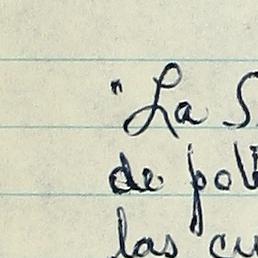 "La S
de pob
las cu